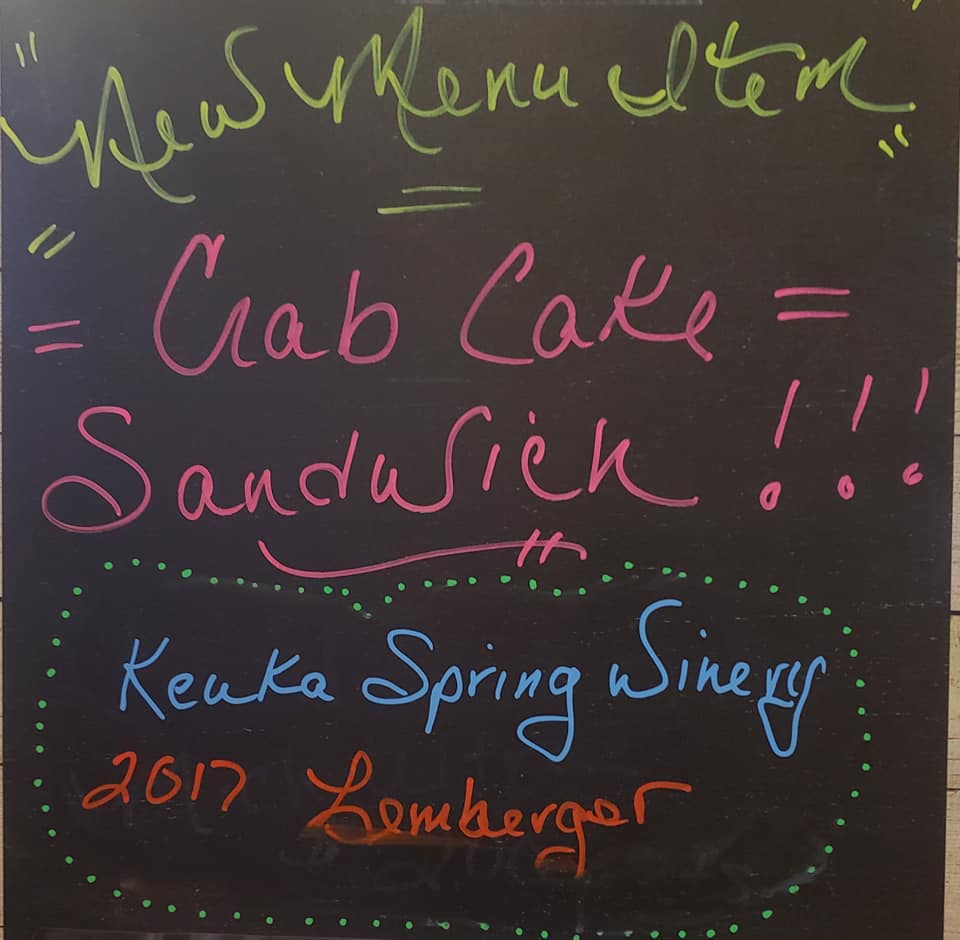 "New Menu Item"
= Crab Cake =
Sandwich !!!
Keuka Spring Winery
2017 Lemberger